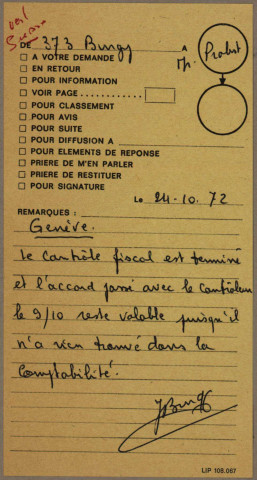 DE 373 Bungy A Mr. Probst
A VOTRE DEMANDE
EN RETOUR
POUR INFORMATION
VOIR PAGE ............
POUR CLASSEMENT
POUR AVIS
POUR SUITE
POUR DIFFUSION A
POUR ELEMENTS DE REPONSE
PRIERE DE M'EN PARLER
PRIERE DE RESTITUER
POUR SIGNATURE
Le 24-10.72
REMARQUES :
Genève.
Le contrôle fiscal est terminé
et l'accord passé avec le contrôleur
le 9/10 reste valable puisqu'il
n'a rien trouvé dans la
comptabilité.
LIP 108.067